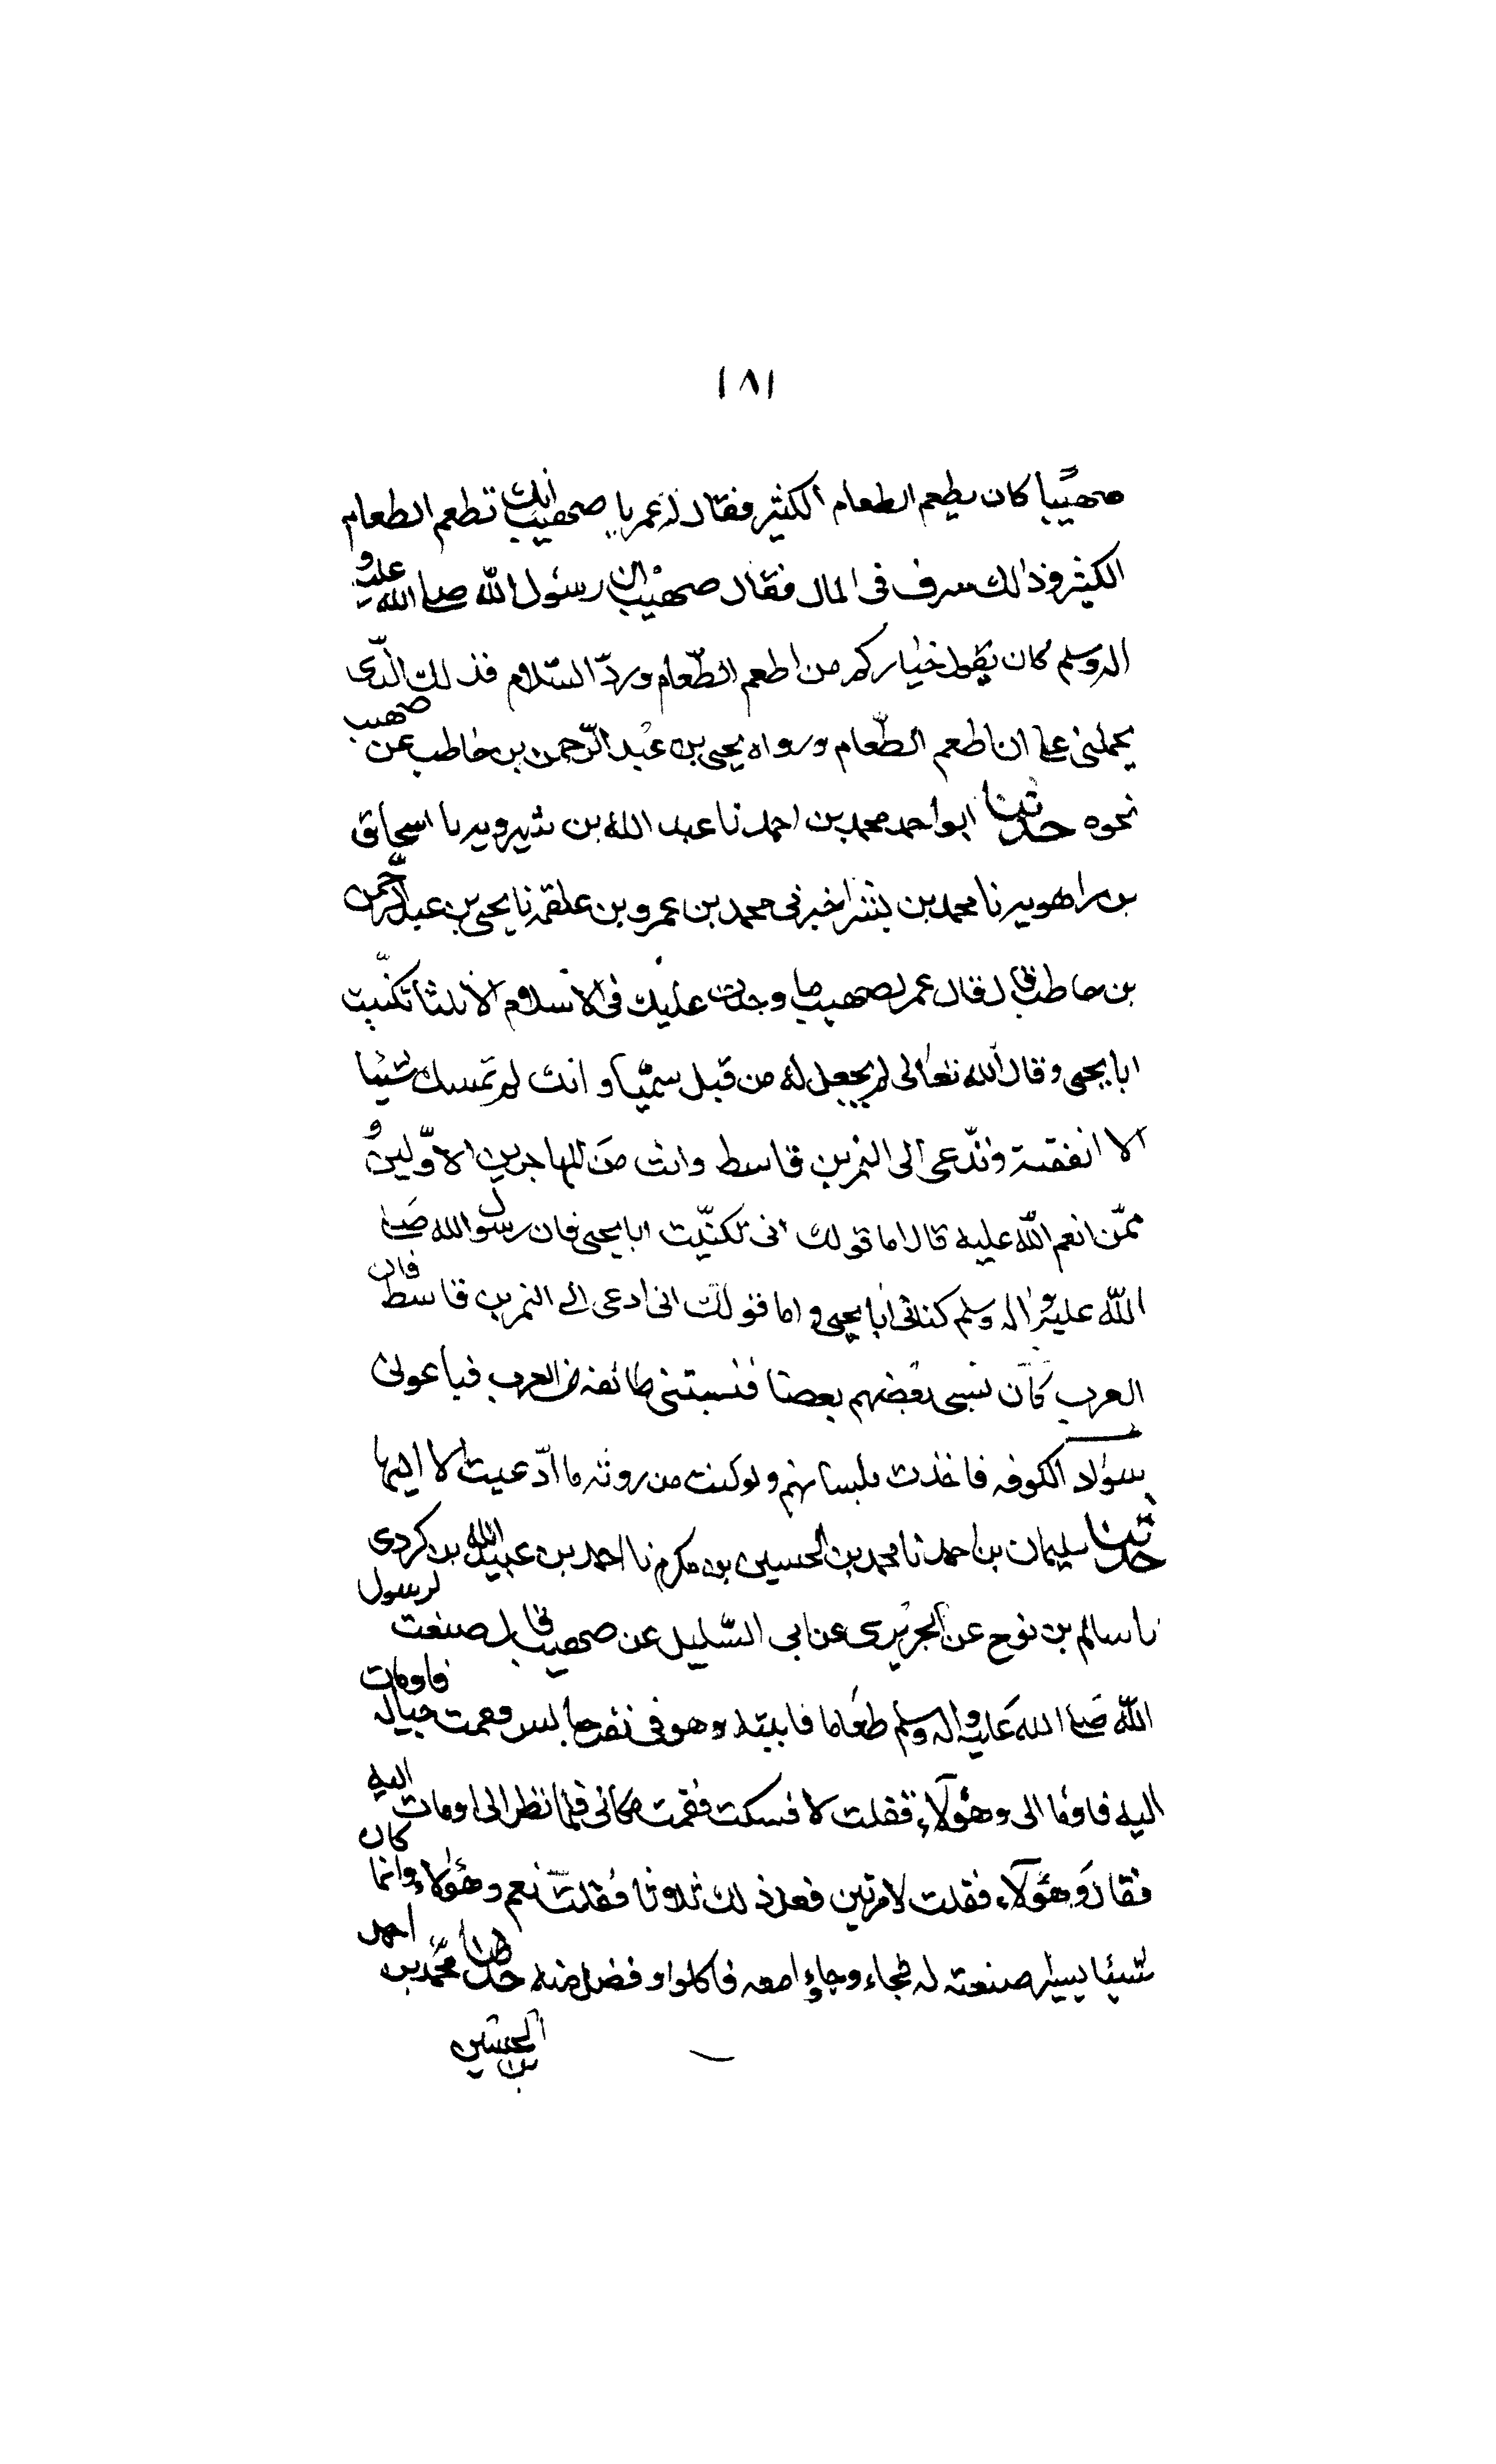 ١٨١
صهيبا كان يطعم الطعام الكثير فقال له عمر يا صهيب انك تطعم الطعام
الكثير وذالك سرف فى المال فقال صهيب ان رسول الله صلى الله عليه و
اله وسلم كان يقول خياركم من اطعم الطعام وردّ السّلام فذلك الّذى
يحملنى على ان اطعم الطّعام ورواه يحيى بن عبد الرّحمن بن حاطب عن صهيب
نحوه حدثنا ابو احمد محمد بن احمد نا عبد الله بن شيرويه نا اسحاق
بن راهويه نا محمد بن بشر اخبرنى محمد بن عمرو بن علقمه نا يحيى بن عبد الرحمن
بن حاطب قال قال عمر لصهيب ما وجدت عليك فى الاسلام الا ثلثا تكنّيت
ابا يحيى وقال الله تعالى لم يجعل له من قبل سميّا و انت لم تمسك شيئا
الا انفقته وتدّعى الى النمر بن قاسط وانت من المهاجرين الاوّلين و
ممّن انعم الله عليه قال اما قولك انى تكنّيت ابا يحيى فان رسول الله صلى
الله عليه و اله وسلم كنانى ابا يحيى و اما قولك انى ادعى الى النمر بن قاسط فان
العرب كان تسبى بعضهم بعضا فسبتنى طائفه من العرب فباعونى
بسواد الكوفه فاخذت بلسانهم و لو كنت من روثه ما ادّعيت الا اليها
حدثنا سليمان بن احمد نا محمد بن الحسين بن مكرم نا احمد بن عبيد الله بن كردى
نا سالم بن نوح عن الجريرى عن ابى السّليل عن صهيب قال صنعت لرسول
الله صلى الله عليه و اله وسلم طعاما فاتيته وهو فى نفر جالس فقمت حياله فاومات
اليه فاوما الى وهؤلاء فقلت لا فسكت فقمت مكانى فلما نظر الى اومات اليه
فقال وهؤلاء فقلت لا مرتين فعل ذلك او ثلاثا فقلت نعم وهؤلاء وانما كان
شيئا يسيرا صنعته له فجاء وجاءوا معه فاكلوا و فضل منه حدثنا محمّد بن احمد
بن الحسين